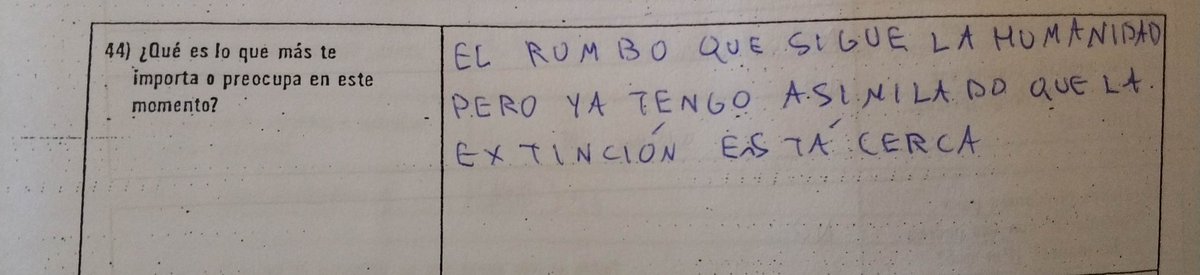 44) ¿Qué es lo que más te
importa o preocupa en este
momento?
EL RUMBO QUE SIGUE LA HUMANIDAD
PERO YA TENGO ASIMILADO QUE LA
EXTINCIÓN ESTÁ CERCA